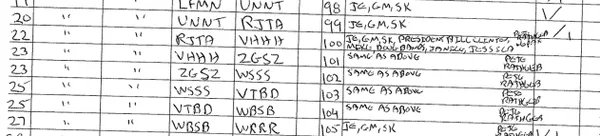 LFMN UNNT 98 JE, GM, SK
20 " " UNNT RJTA 99 JE, GM, SK
22 " " RJTA VHHH 100 JE, GM, SK, PRESIDENT BILL CLINTON,
23 " " VHHH ZGSZ 101 SAME AS ABOVE PETE RATHGEB
23 " " ZGSZ WSSS 102 SAME AS ABOVE PETE RATHGEB
25 " " WSSS VTBD 103 SAME AS ABOVE PETE RATHGEB
25 " " VTBD WBSB 104 SAME AS ABOVE PETE RATHGEB
27 " " WBSB WRRR 105 JE, GM, SK